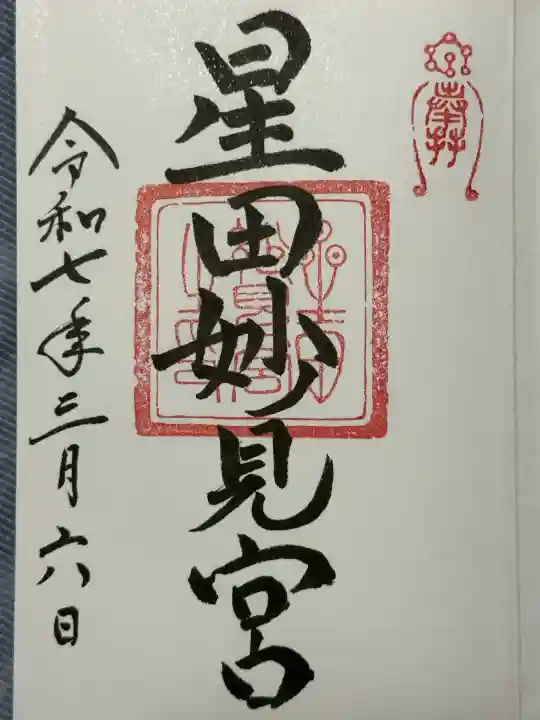 奉拝
星田妙見宮
令和七年三月六日